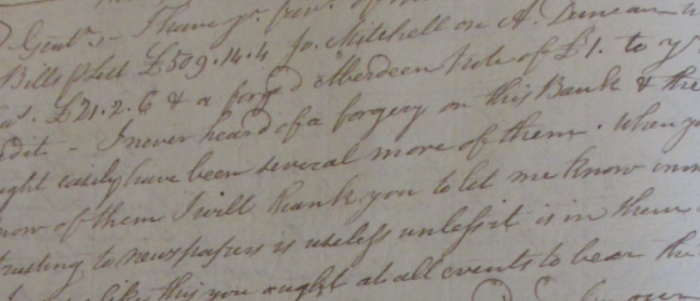 Gentn. - I have yr. favr. of
Bills p List £509.14.4 Jo. Mitchell on A. Duncan
£21.2.6 & a forg'd Aberdeen Note of £1. to yr
dit - I never heard of a forgery on this Bank & the
ght easily have been several more of them. When yo
now of them I will thank you to let me know imm
rusting to newspapers is useless unless it is in them
like this you ought at all events to bear the